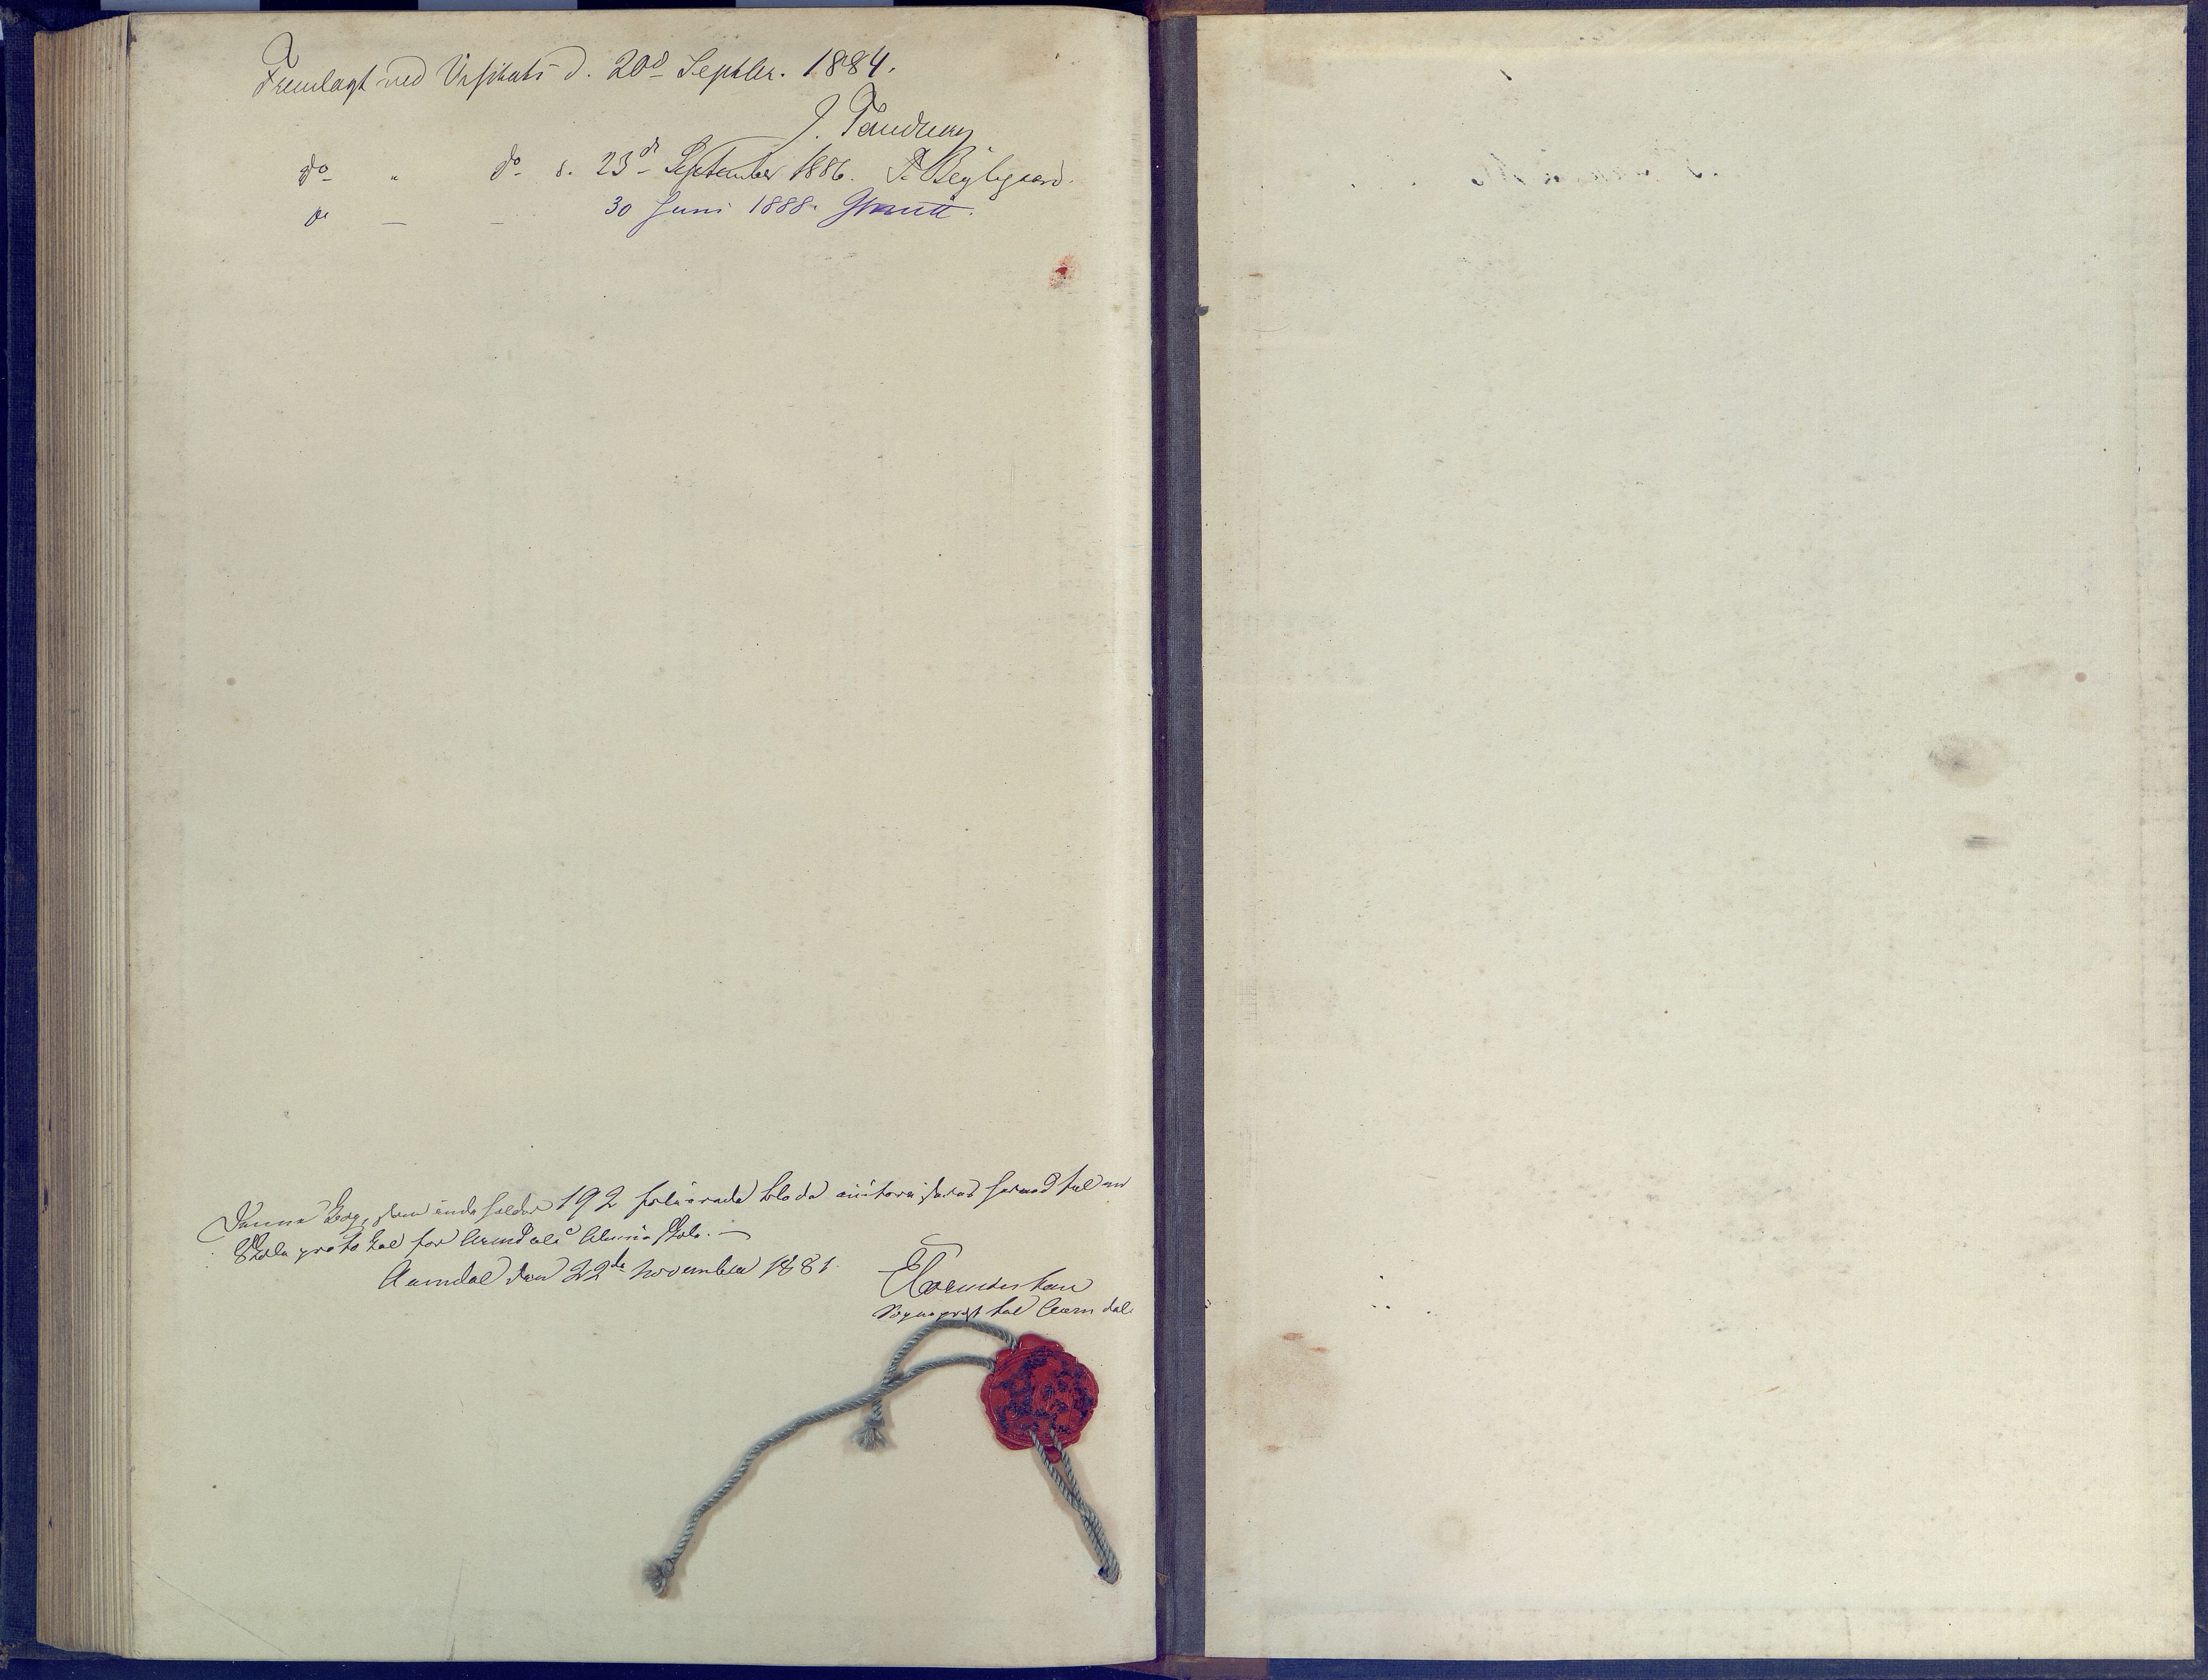 Fremlagt ved Visitats d. 20d Septbr. 1884.
J. Tandberg
do " do d. 23de September 1886. P. Bøylegaard.
do — — 30 Juni 1888.
Denne Bog, som indeholder 192 folierede Blade autoriseres herved til en
Skoleprotokol for Arendals Almueskole. —
Arendal den 22de November 1881.
Sognepræst til Arendal